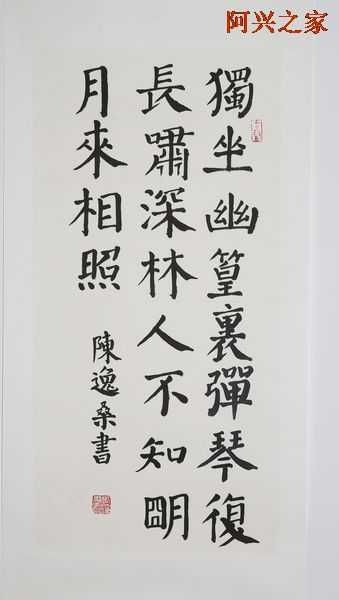 阿兴之家
獨坐幽篁裏彈琴復
長嘯深林人不知明
月來相照
陳逸桑書